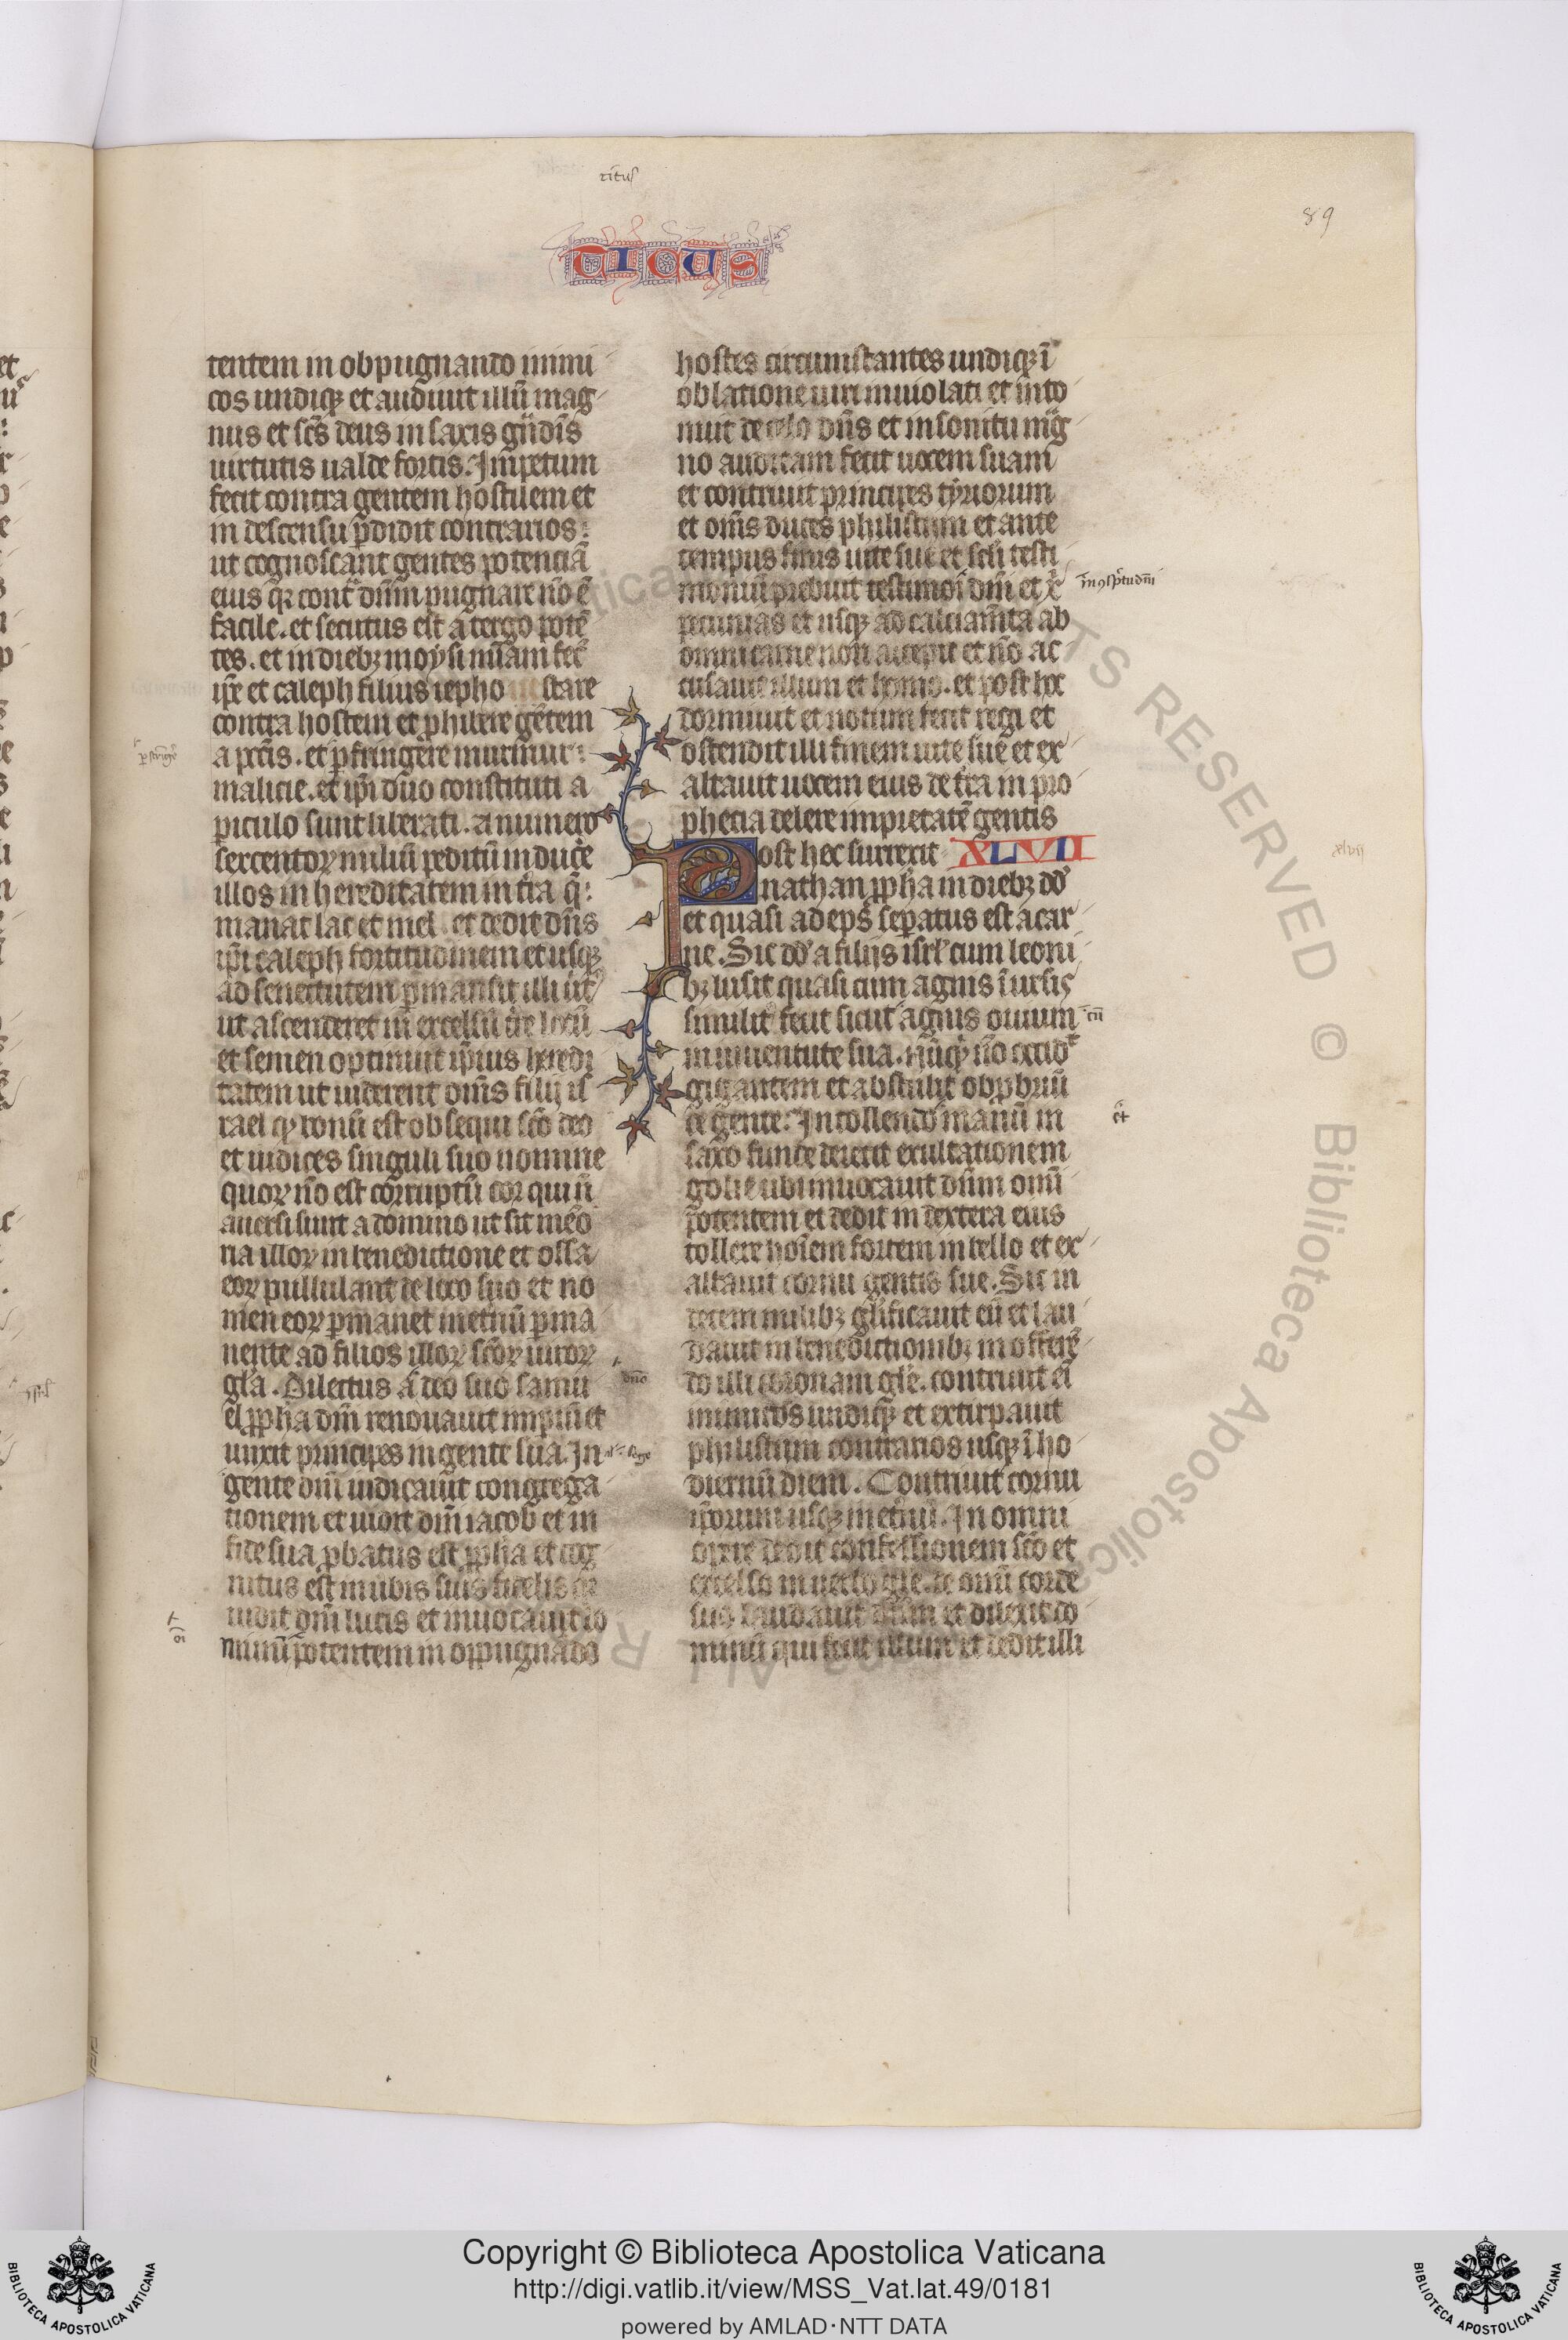 titus
89
TITUS
tentem in obpugnando inimi
cos undiqꝫ et audiuit illũ mag
nus et sc̃s deus in saxis gñdis
uirtutis ualde fortis. Impetum
fecit contra gentem hostilem et
in descensu ꝑdidit contrarios:
ut cognoscant gentes potenciã
eius qꝛ cont̃ dñm pugnare nõ ẽ
facile. et secutus est a tergo potẽ
tes. et in diebꝫ moysi mĩam fec̃
ip̃e et caleph filius iepho stare
contra hostem et phibere gẽtem
a pctĩs. et ꝑfringere murmur:
malicie. et ip̃i duo constituti a
ꝑiculo sunt liberati. a numero
sexcentoꝝ miliũ peditũ inducẽ
illos in hereditatem in tr̃a q̃:
manat lac et mel. et dedit dñs
ip̃i caleph fortitudinem et usqꝫ
ad senectutem ꝑmansit illi uirt̃
ut ascenderet in excelsũ tr̃e locũ
et semen optinuit ip̃ius heredi
tatem ut uiderent om̃s filij is
rael qꝫ bonũ est obsequi sc̃o deo
et iudices singuli suo nomine
quoꝝ nõ est corruptũ cor qui ñ
auersi sunt a domino ut sit mẽo
ria illoꝝ in benedictione et ossa
eoꝝ pullulant de loco suo et no
men eoꝝ ꝑmanet in et̃nũ ꝑma
nente ad filios illoꝝ sc̃oꝝ uiroꝝ
gl̃a. Dilectus a deo suo samu
el ꝓpha dñi renouauit impiũ et
unxit principes in gente sua. In
gente dñi iudicauit congrega
tionem et uidit dñm iacob et in
fide sua ꝓbatus est ꝓpha et cog
nitus est in ubis suis fidelis qꝛ
uidit dñm lucis et inuocauit do
minũ potentem in oppugnãdo
hostes circumstantes undiqꝫ ĩ
oblatione uiri inuiolati et into
nuit de celo dñs et in sonitu mg̃
no auditam fecit uocem suam
et contriuit principes tyriorum
et om̃s duces philistiim et ante
tempus finis uite sue et scl̃i testi
moniũ prebuit testimoĩ dñi et x̃
pecunias et usqꝫ ad calciam̃ta ab
omni carne non accepit et nõ ac
cusauit illum et homo. et post hec
dormiuit et notum fecit regi et
ostendit illi finem uite sue et ex
altauit uocem eius de tr̃a in pro
phetia delere impietatẽ gentis
Post hec surrexit XLVII
nathan ꝓpha in diebꝫ dd̃
et quasi adeps seꝑatus est a car
ne. Sic dd̃ a filijs isrl̃ cum leoni
bꝫ lusit quasi cum agnis ĩ ursis
similit̃ fecit sicut agnus ouium
in iuuentute sua. nũqꝫ nõ occid̃
gigantem et abstulit obꝓbriũ
de gente: In tollendo manũ in
saxo funde deiecit exultationem
golie ubi inuocauit dñm omĩ
potentem et dedit in dextera eius
tollere hoĩem fortem in bello et ex
altauit cornu gentis sue. Sic in
decem milibꝫ gl̃ificauit eũ et lau
dauit in benedictionibꝫ in offerẽ
do illi coronam gl̃e. contriuit eĩ
inimicos undiqꝫ et extirpauit
philistiim contrarios usqꝫ ĩ ho
diernũ diem. Contriuit cornu
ip̃orum usqꝫ in et̃nũ. In omni
opere dedit confessionem sc̃o et
excelso in uerbo gl̃e. de omi corde
suo laudauit dñm et dilexit do
minũ qui fecit illum et dedit illi
xlvii
dño
Copyright © Biblioteca Apostolica Vaticana
http://digi.vatlib.it/view/MSS_Vat.lat.49/0181
powered by AMLAD·NTT DATA
BIBLIOTECA APOSTOLICA VATICANA
BIBLIOTECA APOSTOLICA VATICANA